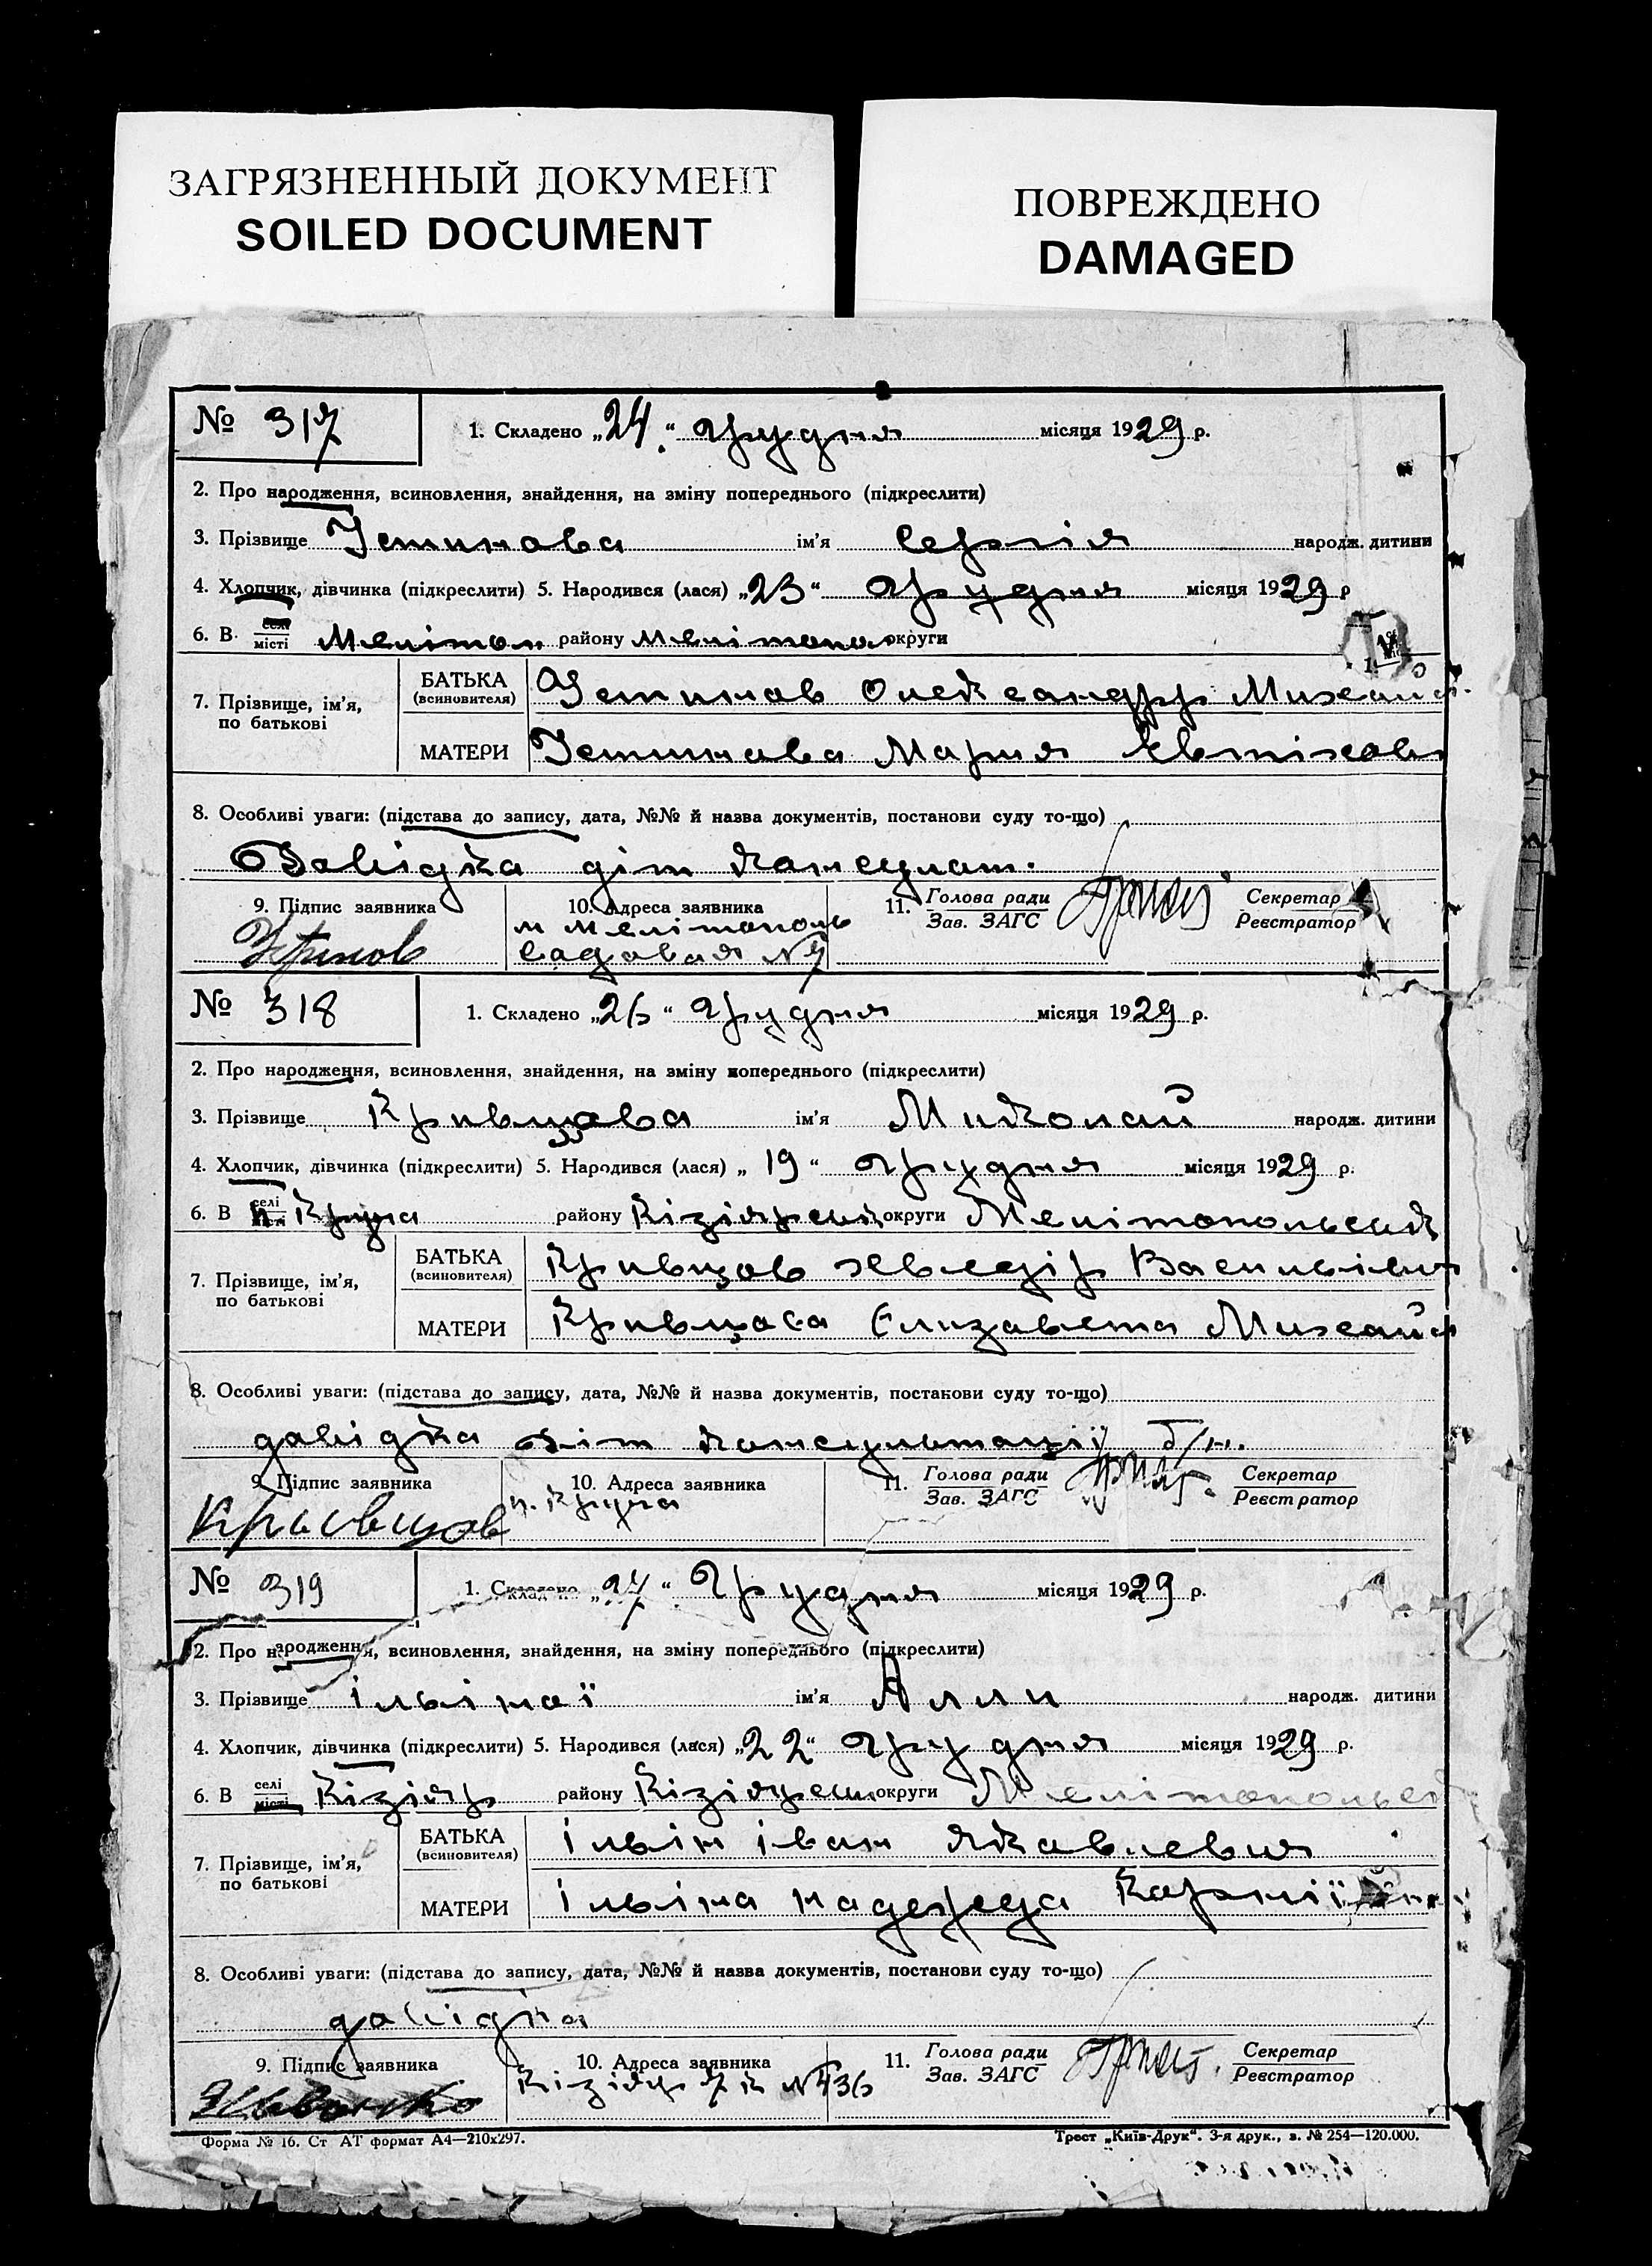 ЗАГРЯЗНЕННЫЙ ДОКУМЕНТ
SOILED DOCUMENT
ПОВРЕЖДЕНО
DAMAGED
№ 317
1. Складено „24“ Грудня місяця 1929 р.
2. Про народження, всиновлення, знайдення, на зміну попереднього (підкреслити)
3. Прізвище Устинова ім'я Сергія народж. дитини
4. Хлопчик, дівчинка (підкреслити) 5. Народився (лася) „23“ Грудня місяця 1929 р
6. В селі місті Мелітоп району Мелітопол округи
7. Прізвище, ім'я, по батькові
БАТЬКА (всиновителя) Устинов Олександр Михайл
МАТЕРИ Устинова Мария Євтіхов
8. Особливі уваги: (підстава до запису, дата, №№ й назва документів, постанови суду то-що)
Довідка діт консулат.
9. Підпис заявника Устинов
10. Адреса заявника
м Мелітополь
Садовая №7
11. Голова ради Зав. ЗАГС
Секретар Реєстратор
№ 318
1. Складено „26“ Грудня місяця 1929 р.
2. Про народження, всиновлення, знайдення, на зміну попереднього (підкреслити)
3. Прізвище Кривцова ім'я Миколай народж. дитини
4. Хлопчик, дівчинка (підкреслити) 5. Народився (лася) „19“ Грудня місяця 1929 р.
6. В селі району Кізіярськ округи Мелітопольськ
7. Прізвище, ім'я, по батькові
БАТЬКА (всиновителя) Кривцов Васильівич
МАТЕРИ Кривцова Єлизавета Михайл
8. Особливі уваги: (підстава до запису, дата, №№ й назва документів, постанови суду то-що)
довідка діт консультації б/н.
9. Підпис заявника Кривцов
10. Адреса заявника
11. Голова ради Зав. ЗАГС
Секретар Реєстратор
№ 319
1. Складено „27“ Грудня місяця 1929 р.
2. Про народження, всиновлення, знайдення, на зміну попереднього (підкреслити)
3. Прізвище Ільіної ім'я Алли народж. дитини
4. Хлопчик, дівчинка (підкреслити) 5. Народився (лася) „22“ Грудня місяця 1929 р.
6. В селі місті Кізіяр району Кізіярськ округи Мелітопольсь
7. Прізвище, ім'я, по батькові
БАТЬКА (всиновителя) Ільін Іван Яковлевич
МАТЕРИ Ільіна Надежда
8. Особливі уваги: (підстава до запису, дата, №№ й назва документів, постанови суду то-що)
довідка
9. Підпис заявника
10. Адреса заявника
Кізіяр 7 к №436
11. Голова ради Зав. ЗАГС
Секретар Реєстратор
Форма № 16. Ст АТ формат А4—210х297.
Трест „Київ-Друк“. 3-я друк., з. № 254—120.000.